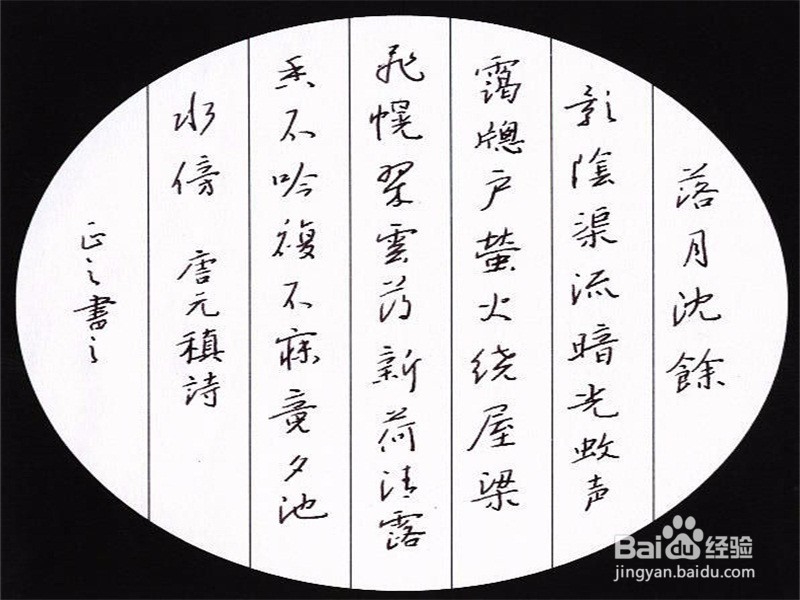 落月沈餘
影陰渠流暗光蚊声
靄牕户萤火绕屋梁
飛幌翠雲薄新荷清露
香不吟複不寐竟夕池
水傍 唐元稹詩
正之書之
Baidu经验
jingyan.baidu.com